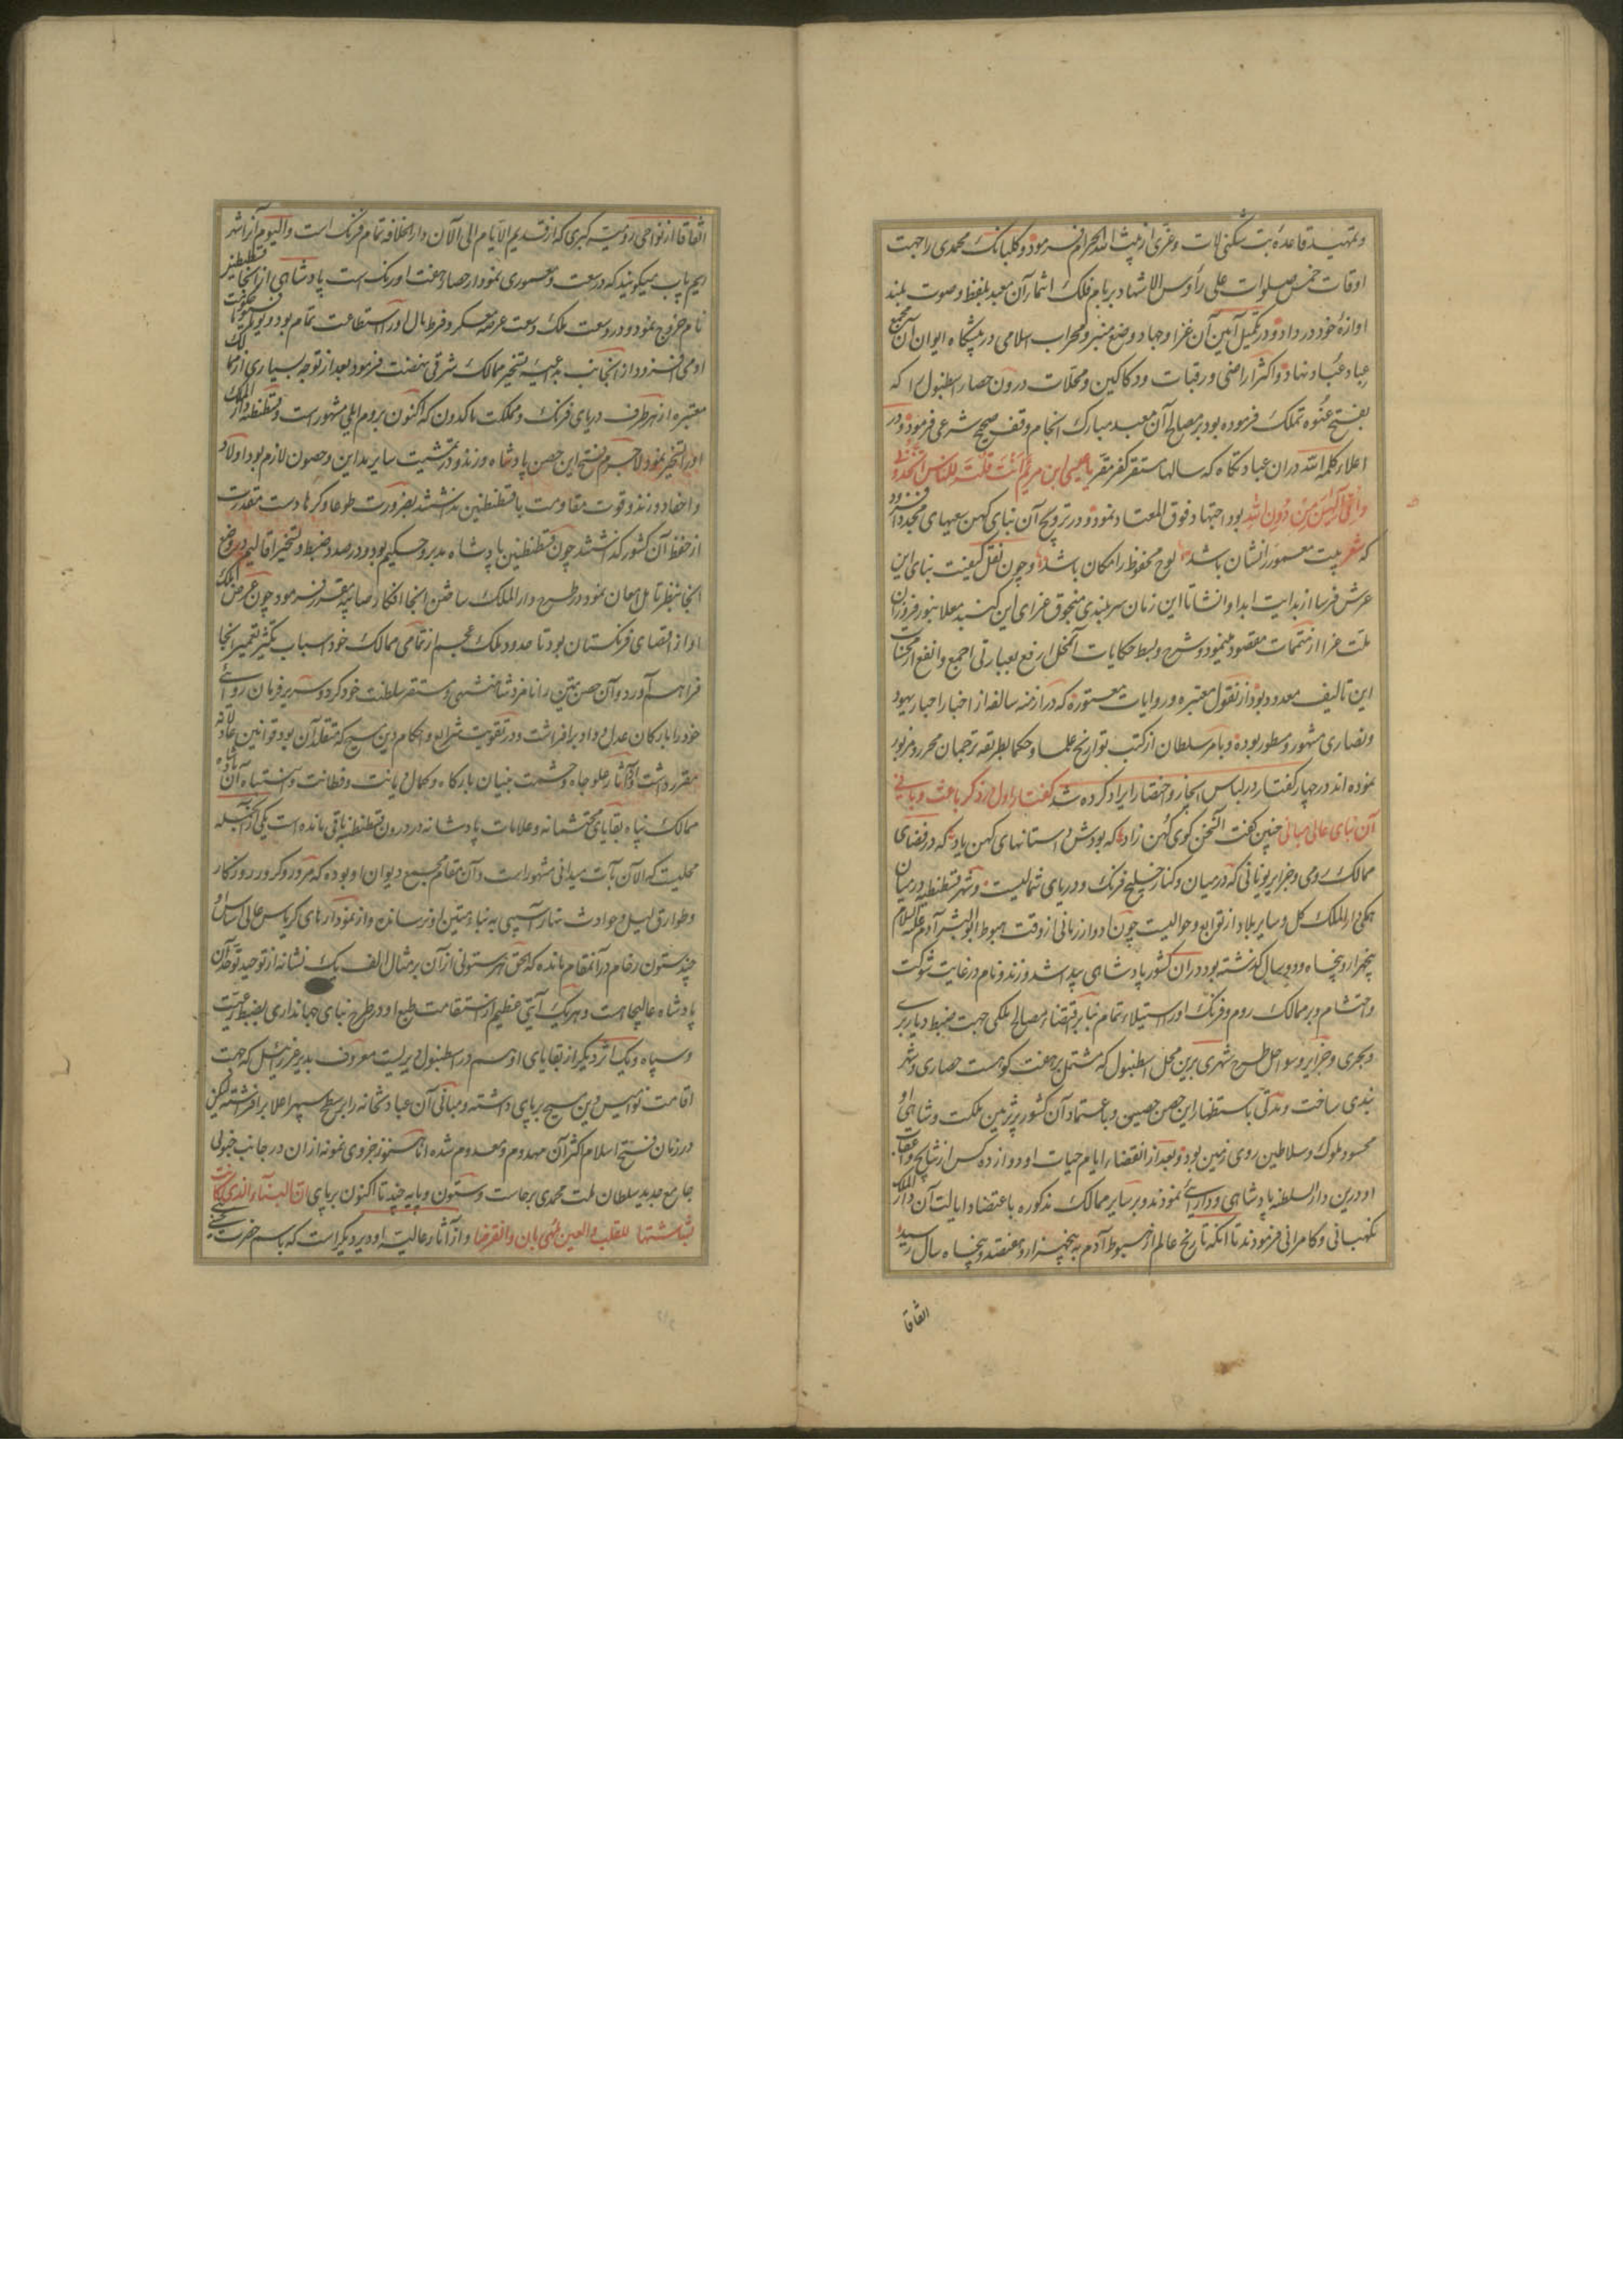 و تمهید قاعده بت شکنی لات و عزی از بیت الله الحرام فرمود و کلبانک محمدی را جهت
اوقات خمس صلوات علی رأوس الاشهاد بر بام فلک اشتهار آن معبد بلفظ و صوت بلند
اوازهٔ خود در داد و در تکمیل آیین آن غزا و جهاد و وضع منبر و محراب اسلامی در پیشکاه ایوان آن مجمع
عباد عبّاد نهاد و اکثر اراضی و رقبات و دکاکین و محلات درون حصار اسطنبول را که
بفتح عنوه تملک فرموده بود بر مصالح آن معبد مبارک انجام وقف صحیح شرعی فرمود و در
اعلاء کلمة الله دران عبادتکاه که سالها مستقر کفر مقر یا عیسی ابن مریم أانت قلت للناس اتخذونی
وامی الهین من دون الله بود اجتهاد فوق المعتاد نمود و در ترویج آن بنای کهن سعیهای مجدد افزود
که شعر بیت معمور را نشان باشد لوح محفوظ را مکان باشد و چون نقل کیفیت بنای این
عرش فرسا از بدایت ابدا و انشا تا این زمان سربلندی منجوق غزای این کنبد معلا بنور فروزان
ملت غرا از متممات مقصود مینمود و شرح و بسط حکایات آن محل ارفع بعبارتی اجمع و انفع از محسنات
این تالیف معدود بود از نقول معتبره و روایات مستوره که در ازمنه سالفه از اخبار احبار یهود
و نصاری مشهور و مسطور بوده و بامر سلطان از کتب تواریخ علما و حکما بطریقه ترجمان محرر و مزبور
نموده اند در چهار کفتار در لباس ایجاز و اختصار ایراد کرده شد کفتار اول در ذکر باعث و بانی
آن بنای عالی مبانی چنین کفت آن سخن کوی کهن زاد که بودش داستانهای کهن یاد که در فضای
ممالک رومی و جزایر یونانی که در میان و کنار خلیج فرنک و دریای شمالیست و شهر قسطنطنیه در میان
همکی دار الملک کل و سایر بلاد از توابع و حوالیست چون ادوار زمانی از وقت هبوط ابوالبشر آدم علیه السلام
پنجهزار و پنجاه و دو سال کذشته بود دران کشور پادشاهی پیدا شد وزندو نام در غایت شوکت
و احتشام و بر ممالک روم و فرنک اورا استیلاء تمام بنابر اقتضاء مصالح ملکی جهت ضبط دیار بری
و بحری و جزایر و سواحل طرح شهری برین محل اسطنبول که مشتمل بر هفت کوهست حصاری و شهر
بندی ساخت و مدتی باستظهار این حصن حصین و باعتماد آن کشور پر تزیین مملکت و شاهی او
محسود ملوک و سلاطین روی زمین بود و بعد از انقضاء ایام حیات او دوازده کس از نتایج و اعقاب
او درین دار السلطنه پادشاهی و دارایی نمودند و بر سایر ممالک مذکوره باعتضاد ایالت آن دار الملک
نکهبانی و کامرانی فرمودند تا آنکه تاریخ عالم از هبوط آدم به پنجهزار و هفتصد و پنجاه سال رسید
اتفاقا
اتفاقا از نواحی رومیه کبری که از قدیم الایام الی الآن دار الخلافه تمام فرنک است و الیوم آنرا شهر
ریم پاپ میکویند که در سعت و معموری نمودار حصار هفت اورنک است پادشاهی از انجا قسطنطین
نام خروج نمود و در وسعت ملک و سعت عرصه معسکر و فرط مال اورا استطاعت تمام بود و
او می افزود و از انجانب به داعیه تسخیر ممالک شرقی نهضت فرمود بعد از توجه بسیاری از ممالک
معتبره از هر طرف دریای فرنک و مملکت ماکدون که اکنون بروم ایلی مشهورست و قسطنطنیه دار الملک
اورا تسخیر نمود لاجرم فتح این حصن پادشاه وزندو در تمشیت سایر مداین و حصون لازم بود اولاد
و احفاد وزندو قوت مقاومت با قسطنطین نداشتند بضرورت طوعا و کرها دست مقدرت
از حفظ آن کشور کذاشتند چون قسطنطین پادشاه مدبر و حکیم بود و در صدد ضبط و تسخیر اقالیم در وضع
انجا بنظر تامل امعان نمود و در طرح دار الملک ساختن انجا افکار صایبه مقرر فرمود چون عرض ملک
او از اقصای فرنکستان بود تا حدود ملک عجم از تمامی ممالک خود اسباب تکثیر تعمیر انجا
فراهم آورد و آن حصن متین را نامزد شاهنشهی و مستقر سلطنت خود کرد و سریر فرمان روائی
خود را بارکان عدل و داد بر افراشت و در تقویت شرایع و احکام دین مسیح که متقلد آن بود قوانین عادلانه
مقرر داشت و از آثار علو جاه و حشمت بنیان بارکاه و کمال دیانت و فطانت و انتباه آن پادشاه
ممالک پناه بقایای محتشمانه و علامات پادشانه در درون قسطنطنیه باقی مانده است یکی از انجمله
محلیست که الآن بآت میدانی مشهور است و آن مقام مجمع دیوان او بوده که مرور و کرور روزکار
و طوارق لیل و حوادث نهار آسیبی به بناء متین او نرسانده و از نمودارهای کریاس عالی اساس او
چند ستون رخام در آنمقام مانده که الحق هر ستونی از آن بر مثال الف یک نشانه از توحید و توحد آن
پادشاه عالیجاهست و هر یک آیتی عظیم از استقامت طبع او در طرح بنای جهانداری بضبط رعیت
و سپاه و یک اثر دیکر از بقایای او هم در اسطنبول دیریست معروف بدیر عزرائیل که جهت
اقامت نوامیس دین مسیح بر پای داشته و مبانی آن عبادتخانه را بر سطح سپهر اعلا بر افراشته لیکن
در زمان فتح اسلام اکثر آن مهدوم و معدوم شده اما هنوز جزوی نمونه از ان در جانب جنوبی
جامع جدید سلطان ملت محمدی برجاست و ستون و پایه چند تا اکنون بر پای ان البناء الذی کانت
بشاشتها للقلب والعین و از آثار عالیه او دیر دیکر است که باسم حضرت